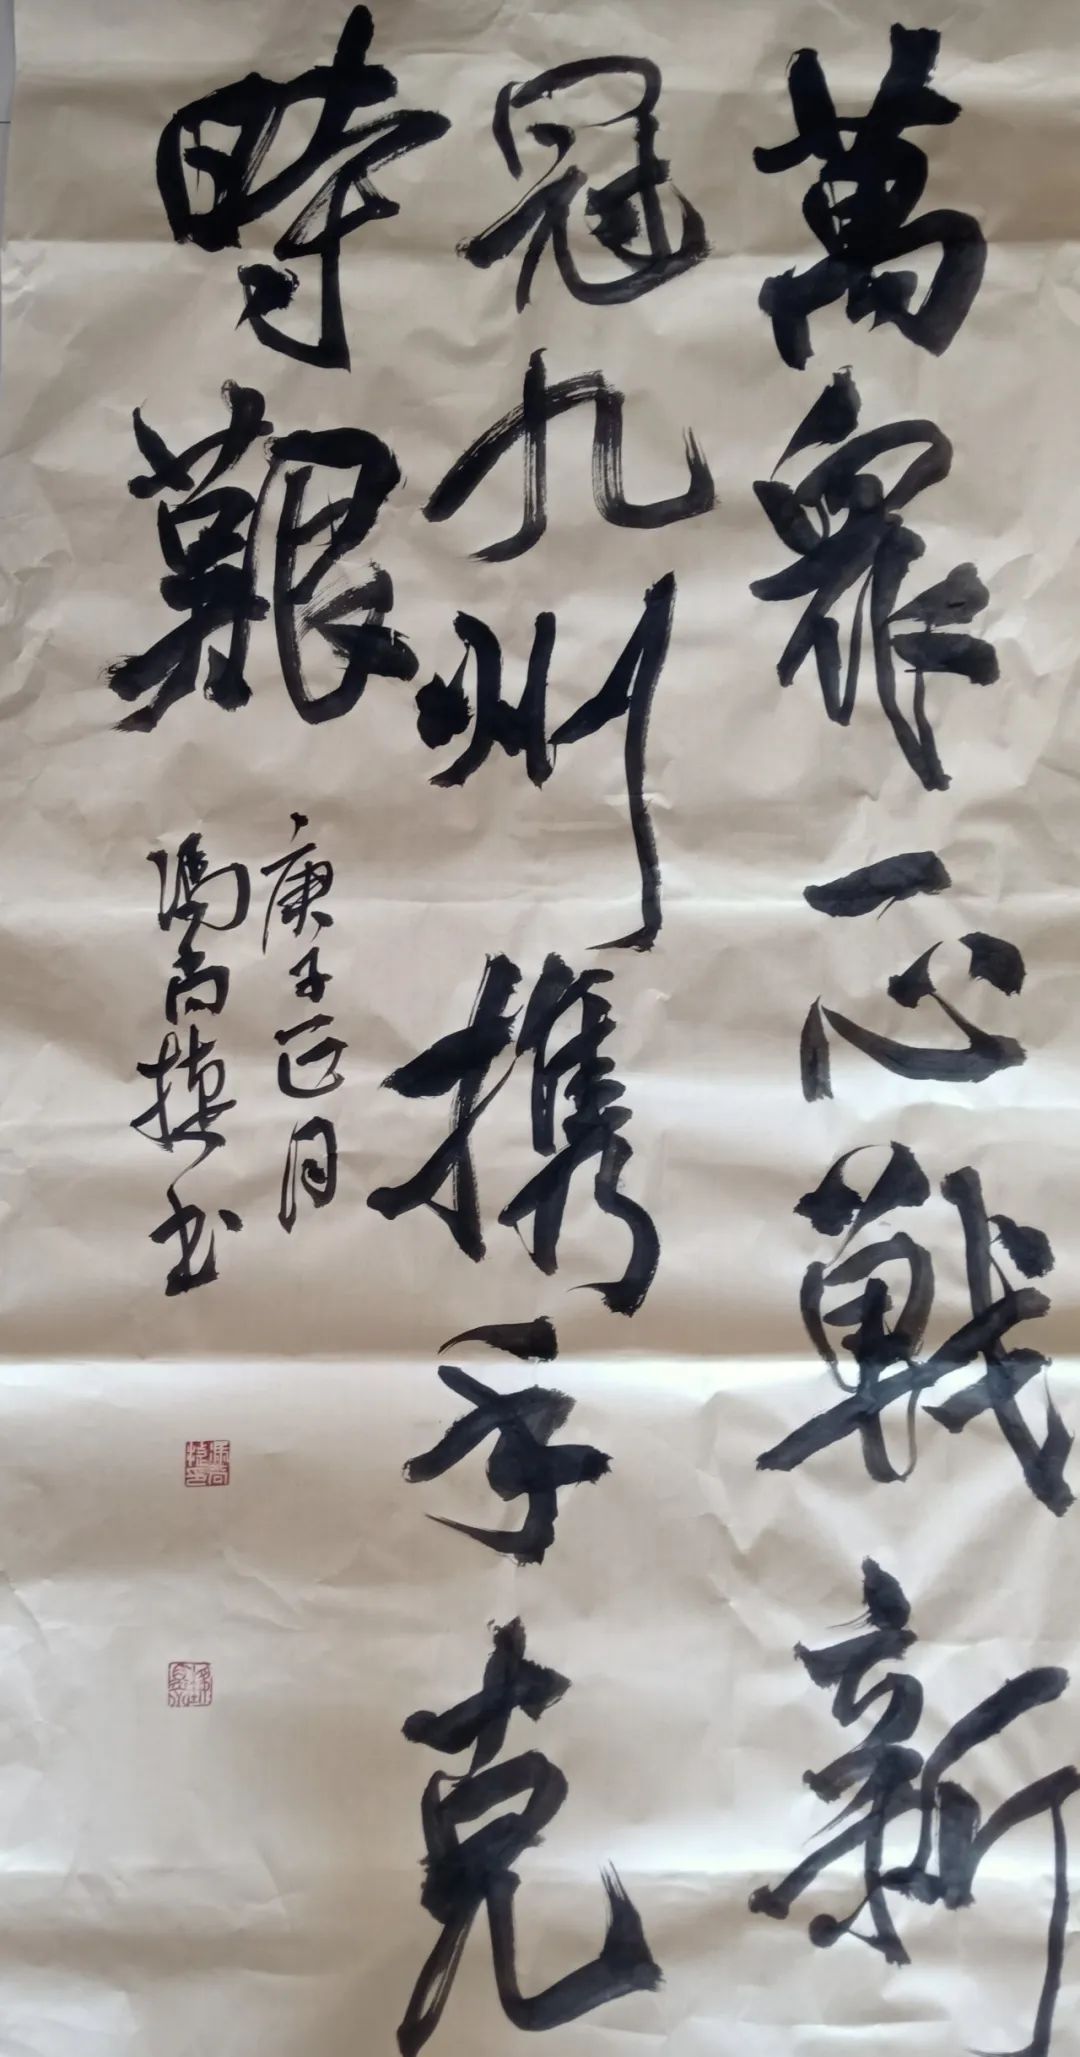 萬眾一心戰新
冠九州携手克
時艱
庚子正月
馮尚捷书